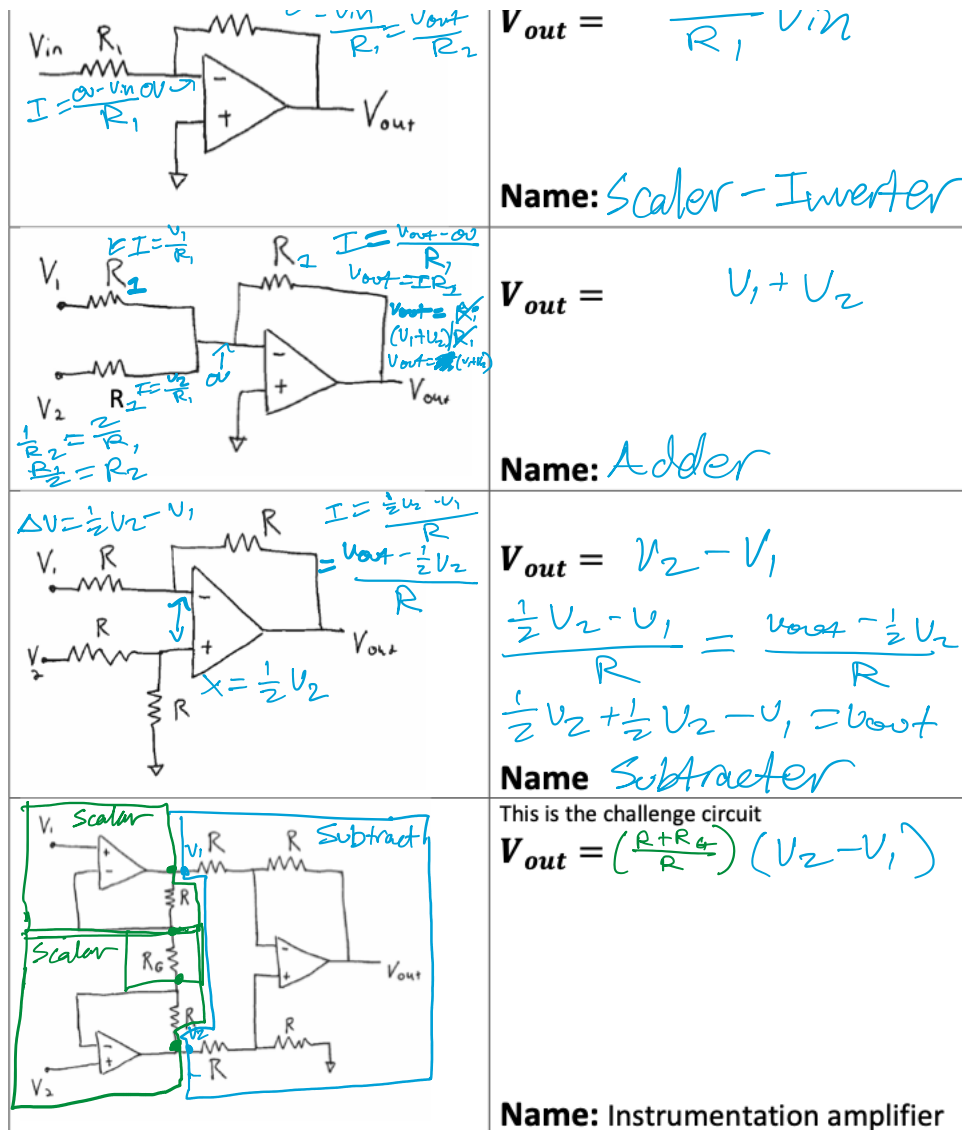 Vin R₁
I = 0V - Vin / R₁
0V
- Vin / R₁ = Vout / R₂
-
+
Vout
Vout = / R₁ Vin
Name: Scaler - Inverter
I = V₁ / R₁
V₁ R₁
R₁
I = Vout - 0V / R₁
Vout = IR₁
Vout = R₁
(V₁+V₂)/R₁
Vout = (V₁+V₂)
V₂ R₁
I = V₂ / R₁
0V
-
+
Vout
1/R₂ = 2/R₁
R₁/2 = R₂
Vout = V₁ + V₂
Name: Adder
ΔV = ½V₂ - V₁
I = ½V₂ - V₁ / R
= Vout - ½V₂ / R
V₁ R
R
R
V₂
-
+
Vout
R
x = ½V₂
Vout = V₂ - V₁
½V₂ - V₁ / R = Vout - ½V₂ / R
½V₂ + ½V₂ - V₁ = Vout
Name Subtracter
Scalar
V₁
+
-
R
Subtract
V₁ R R
Scalar
RG
R
-
+
Vout
V₂
-
+
V₂
R
R
This is the challenge circuit
Vout = (R+RG / R) (V₂ - V₁)
Name: Instrumentation amplifier